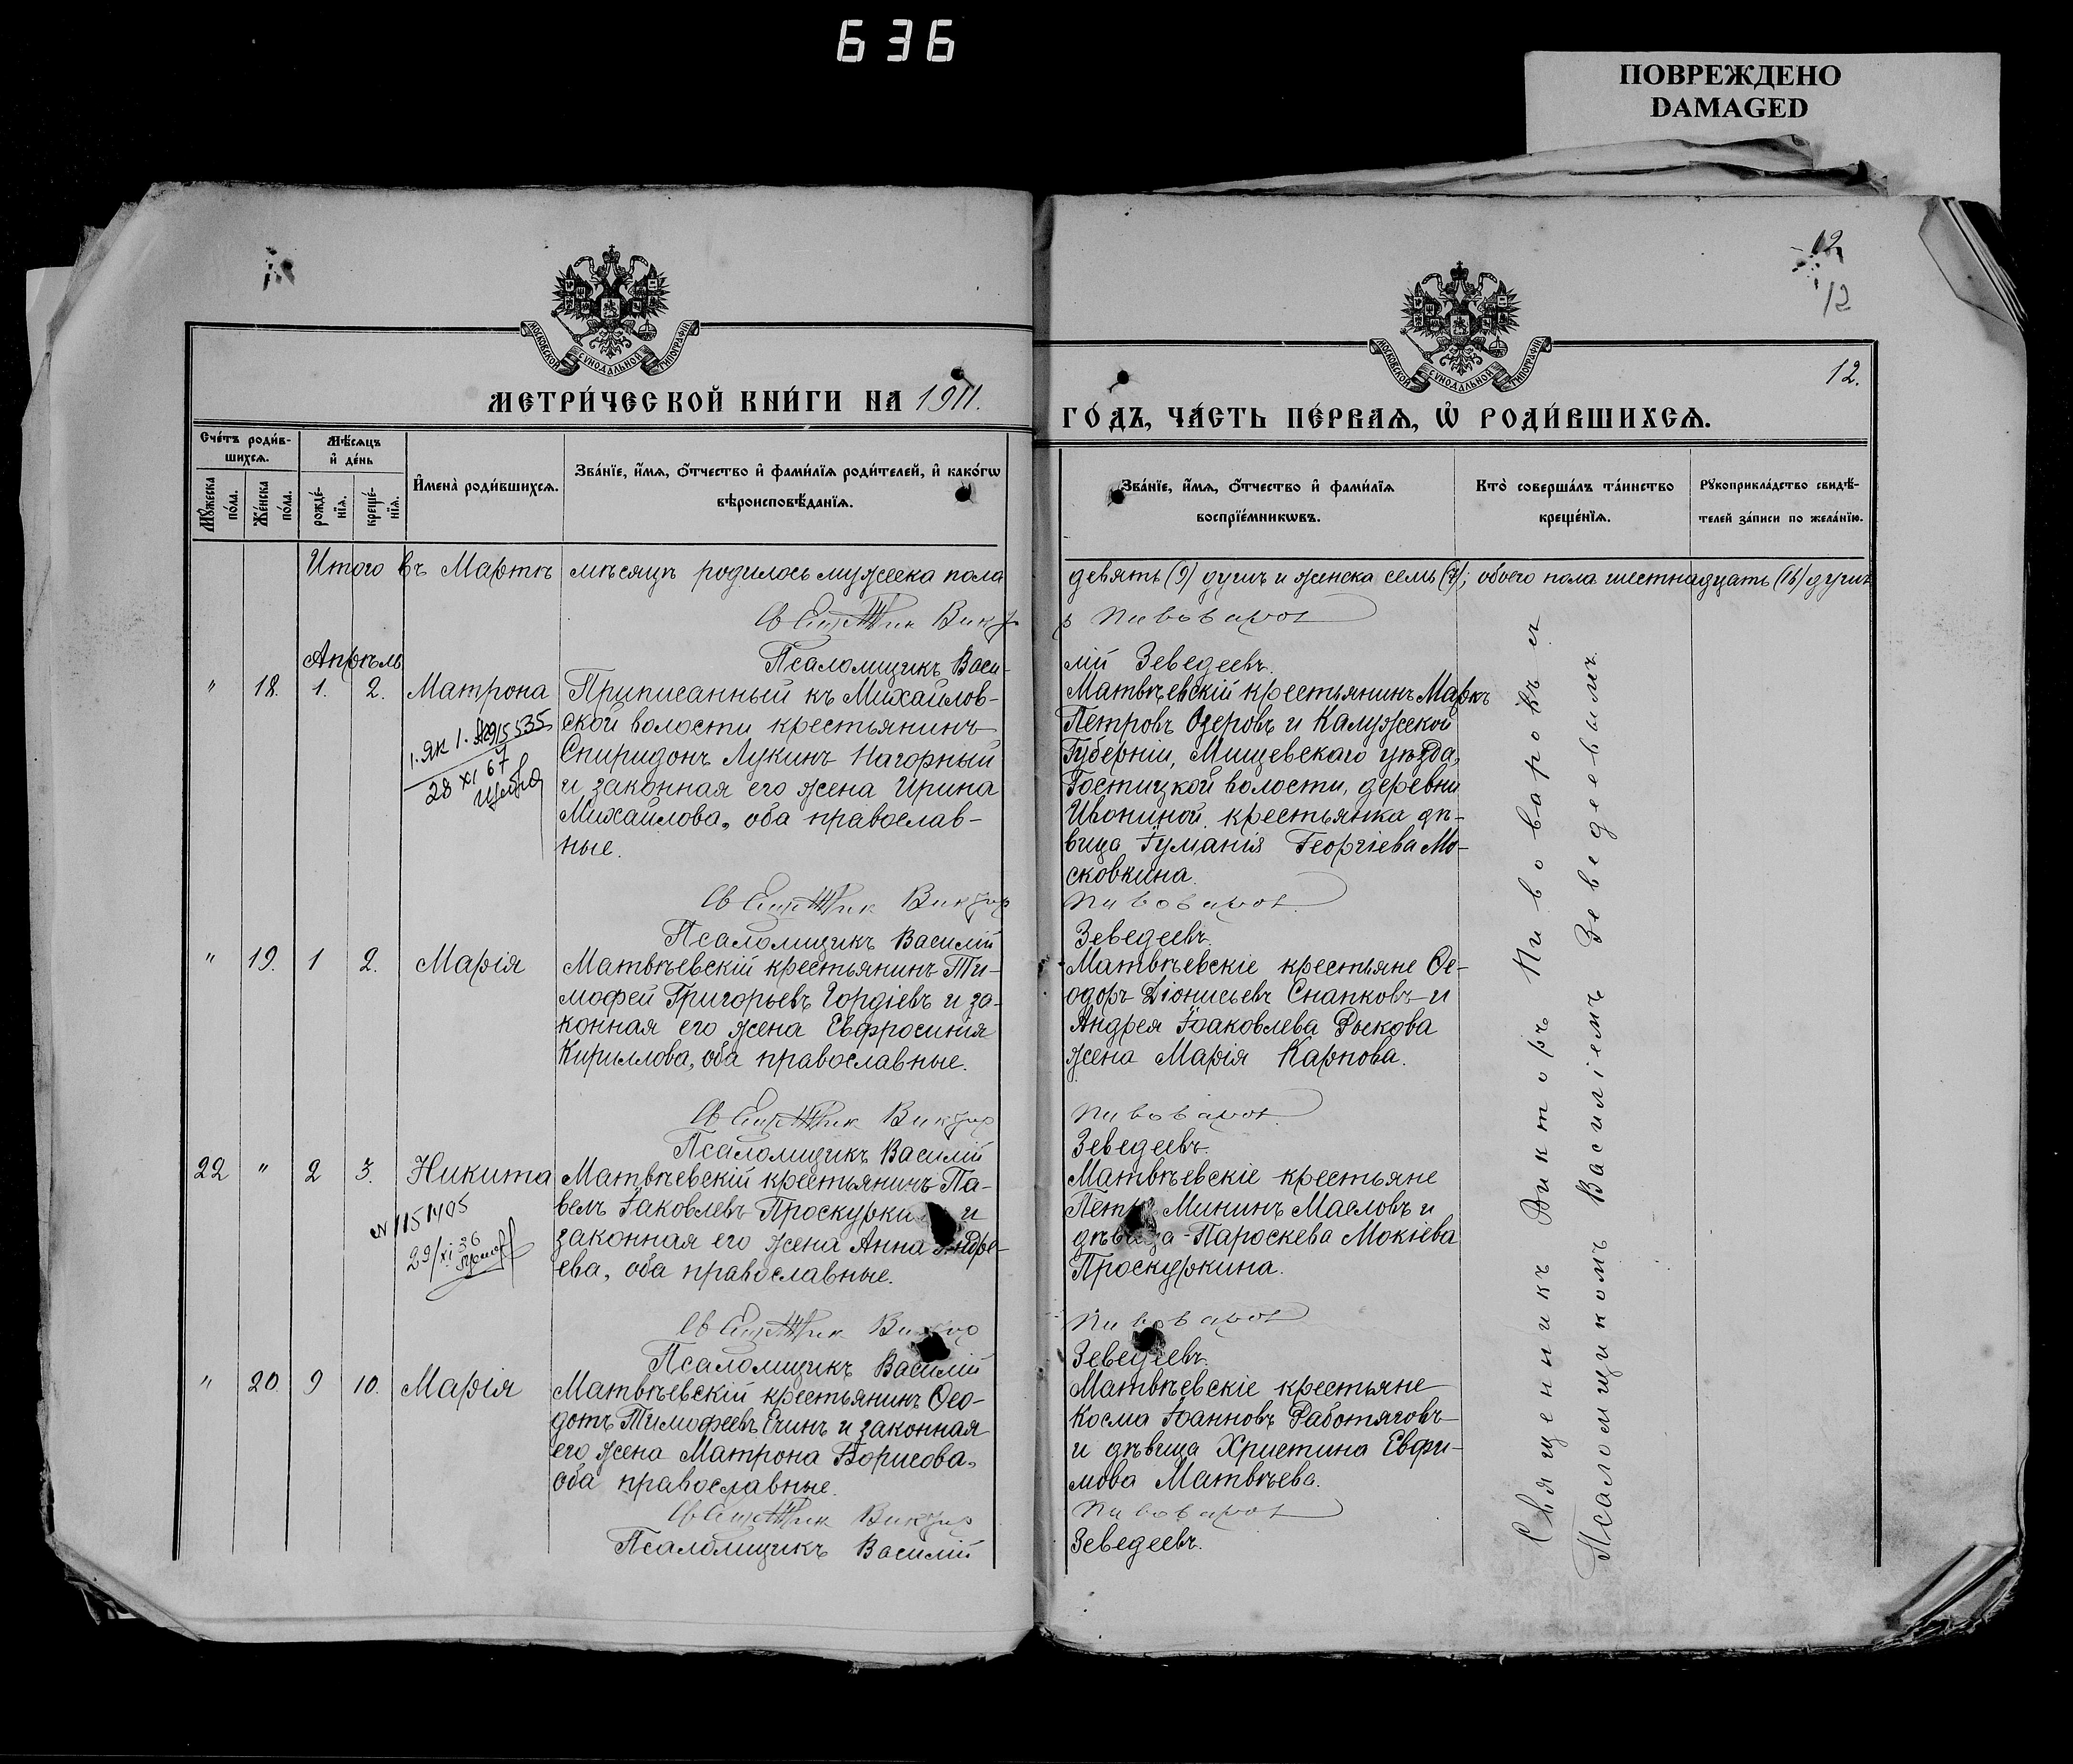 636
ПОВРЕЖДЕНО
DAMAGED
12
12
МОСКОВСКОЙ СѴНОДАЛЬНОЙ ТИПОГРАФІИ
МОСКОВСКОЙ СѴНОДАЛЬНОЙ ТИПОГРАФІИ
12.
МЕТРИ́ЧЕСКОЙ КНИ́ГИ НА 1911.
ГО́ДЪ, ЧА́СТЬ ПЕ́РВАѦ, Ѡ҆ РОДИ́ВШИХСѦ.
Сче́тъ роди́в-
шихсѧ.
Мꙋ́жеска по́ла.
Же́нска по́ла.
Мѣ́сѧцъ
и҆ де́нь
рожде́-
нїѧ.
креще́-
нїѧ.
И҆мена̀ роди́вшихсѧ.
Зва́нїе, и҆́мѧ, ѻ҆́тчество и҆ фами́лїѧ роди́телей, и҆ како́гѡ
вѣроисповѣ́данїѧ.
Зва́нїе, и҆́мѧ, ѻ҆́тчество и҆ фами́лїѧ
воспрїе́мникѡвъ.
Кто̀ соверша́лъ та́инство
креще́нїѧ.
Рꙋкоприкла́дство свидѣ́-
телей за́писи по жела́нїю.
Итого въ Мартѣ мѣсяцѣ родилось мужеска пола
девять (9) душъ и женска семь (7); обоего пола шестнадцать (16) душъ
Виктор
Пивоваров
Апрѣль
Псаломщикъ Васи-
лій Зеведеевъ.
" 18. 1. 2. Матрона
28 XI 67
Приписанный къ Михайлов-
ской волости крестьянинъ
Спиридонъ Лукинъ Нагорный
и законная его жена Ирина
Михайлова, оба православ-
ные.
Матвѣевскій крестьянинъ Маркъ
Петровъ Озеровъ и Калужской
Губерніи, Мищевскаго уѣзда,
Гостицкой волости, деревни
Ивониной крестьянка дѣ-
вица Георгіева Мо-
сковкина.
Виктор
Пивоваров
Псаломщикъ Василій
Зеведеевъ.
" 19. 1 2. Марія
Матвѣевскій крестьянинъ Ти-
мофей Григорьевъ Гордіевъ и за-
конная его жена Евфросинія
Кириллова, оба православные.
Матвѣевскіе крестьяне Ѳе-
одоръ Діонисьевъ Снапковъ и
Андрея Іаковлева Рыскова
жена Марія Карпова.
Виктор
Пивоваров
Псаломщикъ Василій
Зеведеевъ.
22 " 2 3. Никита
N 1151405
29/XI 36
Матвѣевскій крестьянинъ Па-
велъ Іаковлевъ Проскуркинъ и
законная его жена Анна Андре-
ева, оба православные.
Матвѣевскіе крестьяне
Петръ Мининъ Масловъ и
дѣвица Параскева Мокіева
Проскуркина.
Виктор
Пивоваров
Псаломщикъ Василій
Зеведеевъ.
" 20. 9 10. Марія
Матвѣевскій крестьянинъ Ѳео-
дотъ Тимофеевъ Ечинъ и законная
его жена Матрона Борисова,
оба православные.
Матвѣевскіе крестьяне
Косма Іоанновъ Работяговъ
и дѣвица Христина Евфи-
мова Матвѣева.
Виктор
Пивоваров
Псаломщикъ Василій
Зеведеевъ.
Священникъ Викторъ Пивоваровъ съ
Псаломщикомъ Василіемъ Зеведеевымъ.